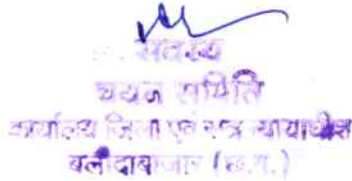 सदस्य
चयन समिति
कार्यालय जिला एवं सत्र न्यायाधीश
बलौदाबाजार (छ.ग.)